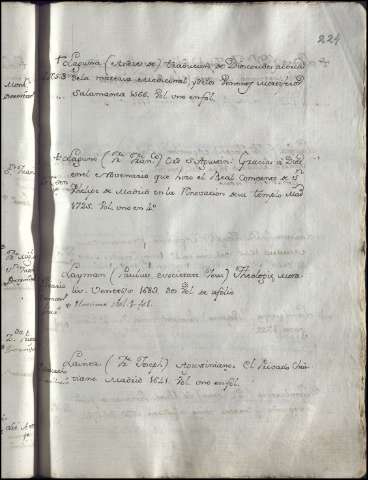 224
Laguna (Andres de) traducion de Dioscorides acerca
de la materia Medicinal, y delos Venenos Mortiferos
Salamanca 1566. Vol uno en fol.
Laguna (Fr. Franco.) Ord. S. Agustin. Gracias a Dios
en el Novenario que hizo el Real Convento de Sn.
Phelipe de Madrid en la Renovacion de su templo Mad
1725. Vol uno en 4o
Layman (Paulus e Societate Jesu) Theologia Mora
lis. Venetiis 1683. Dos Vol de a folio
Lainez (Fr. Joseph) Agustiniano. El Privado Chris
tiano Madrid 1641. Vol uno en fol.